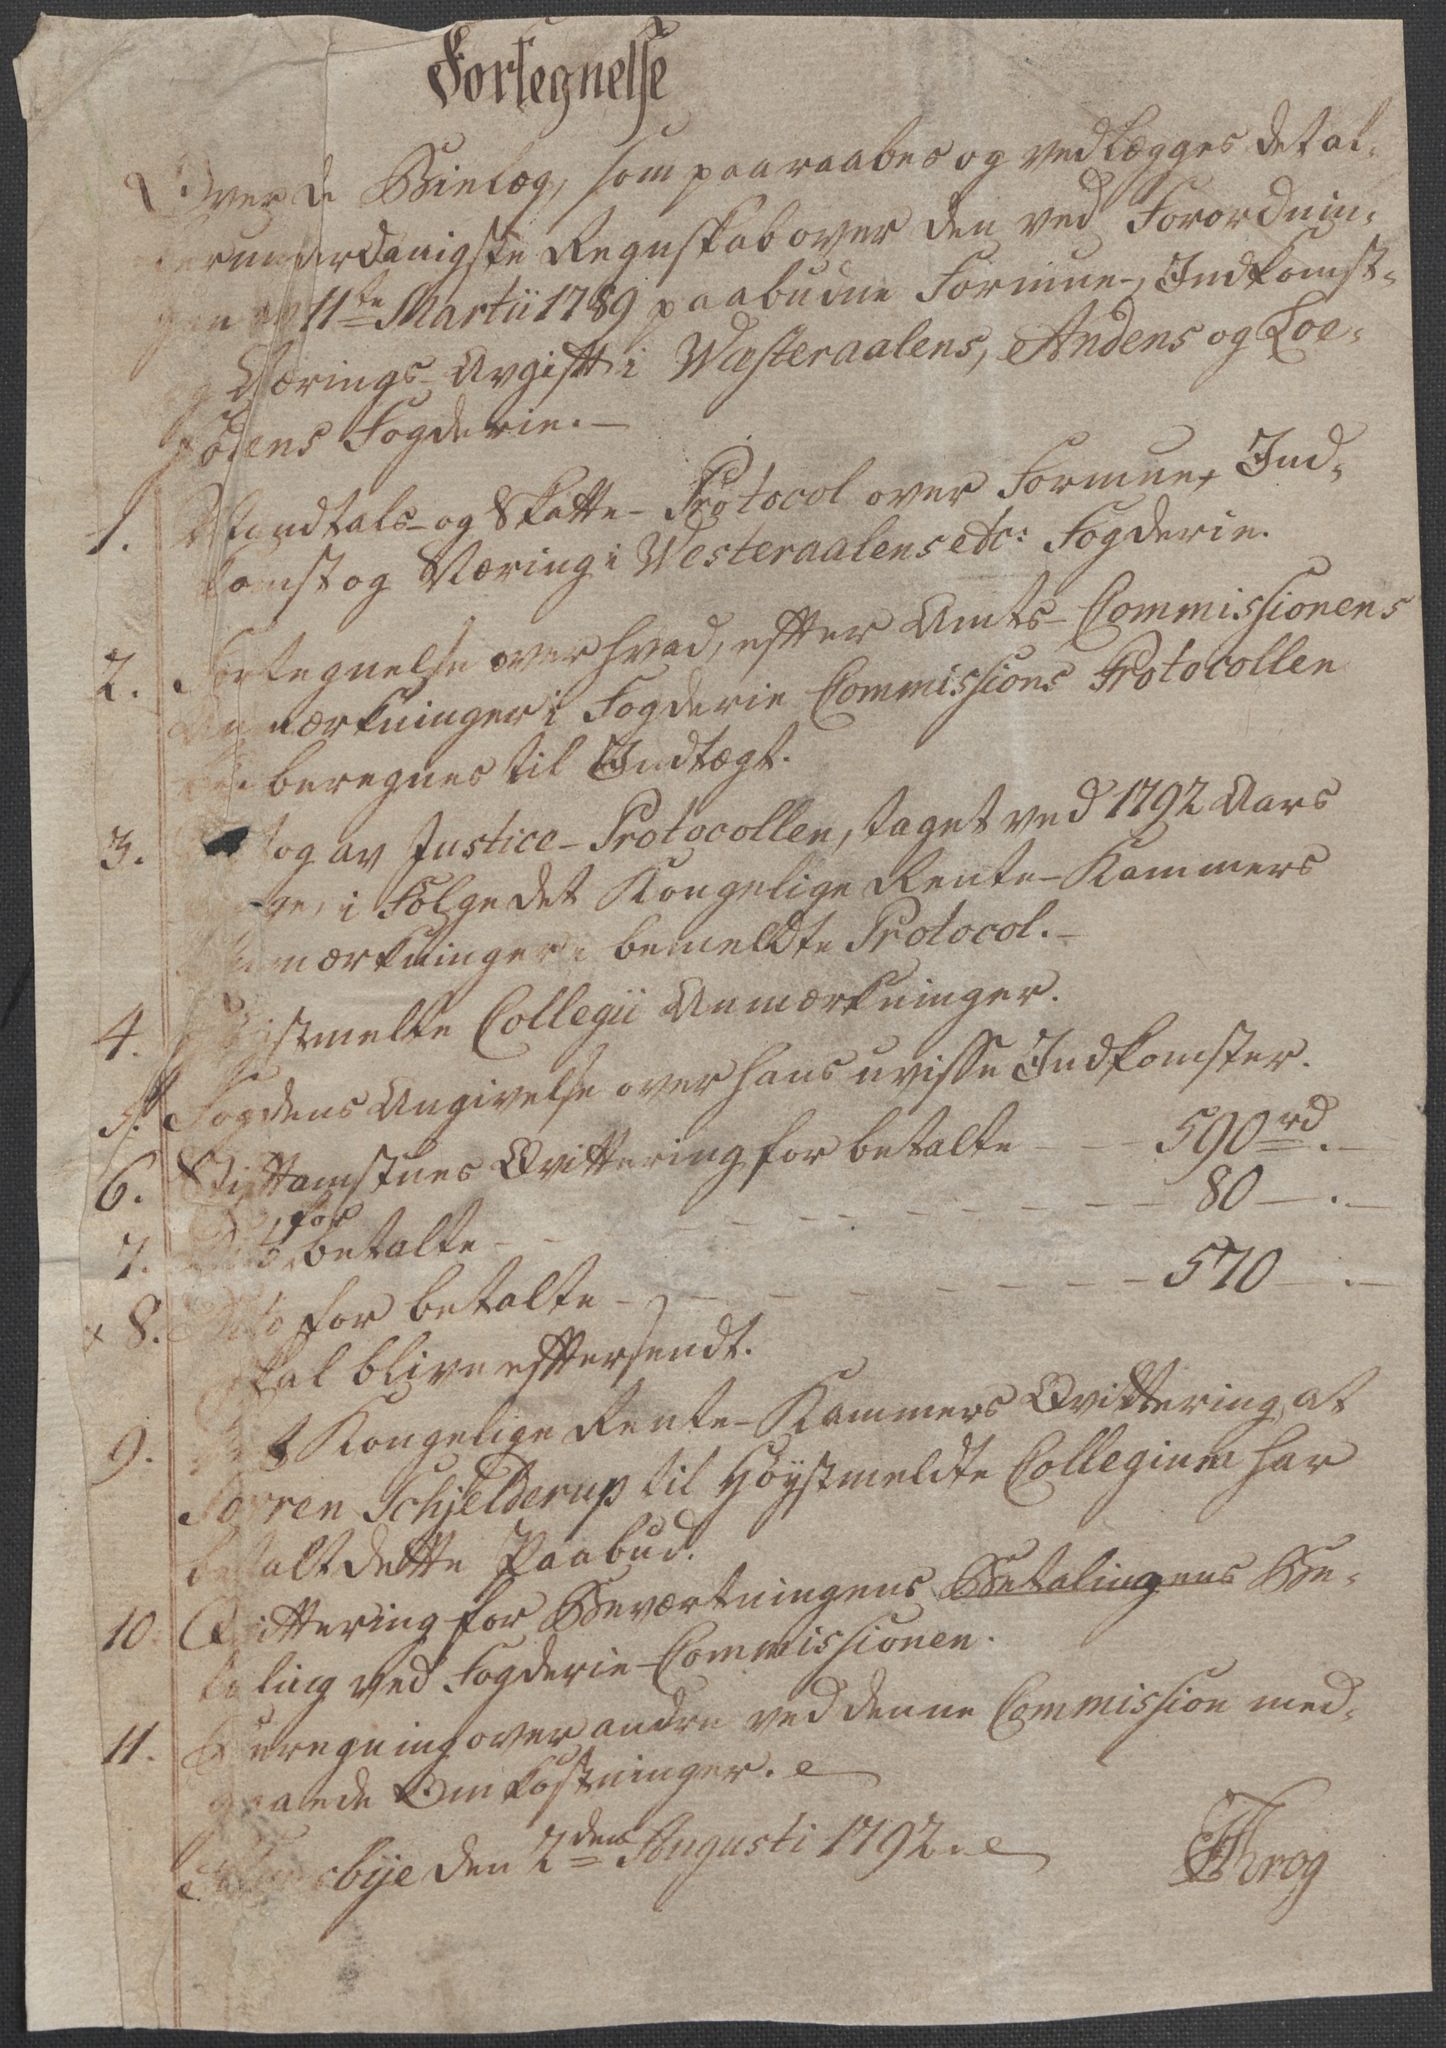 Fortegnelse
Over de Bielæg, som paaraabes og vedlægges det al-
lerunderdanigste Regnskab over den ved Forordnin-
gen av 11te Martii 1789 paabudne Formue-, Indkomst-
og Nærings-Avgift i Westeraalens, Andens og Loe-
fodens Fogderie.
1. Mandtals- og Skatte-Protocol over Formue, Ind-
komst og Næring i Westeraalens etc: Fogderie.
2. Fortegnelse over hvad, effter Amts-Commissionens
Anmærkninger i Fogderie Commissions Protocollen
beregnes til Indtægt.
3. Udtog av Justice-Protocollen, taget ved 1792 Aars
i Følge det Kongelige Rente-Kammers
Anmærkninger i bemeldte Protocol.
4. Høystmelte Collegii Anmærkninger.
5. Fogdens Angivelse over hans uvisse Indkomster.
6. Stiftamstues Qvittering for betalte - - 590 rd. -
7. Dito, for betalte - - - - - - - - 80 - . -
x 8. Dito for betalte - - - - - - - 570 - . -
skal blive efftersendt.
9. Det Kongelige Rente-Kammers Qvittering, at
Sørren Schjelderup til Høystmeldte Collegium har
betalt dette Paabud.
10. Qvittering for Beværtningens Betalingens Be-
taling ved Fogderie-Commissionen.
11. Beregning over andre ved denne Commission med-
gaaede Omkostninger.
bye den 2den Augusti 1792.
JThrog